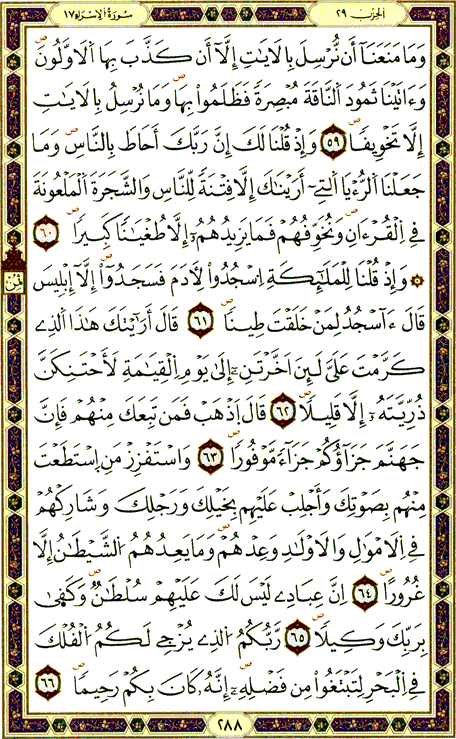 الحزب ٢٩
سورة الإسراء ١٧
وَمَا مَنَعَنَآ أَن نُّرْسِلَ بِالَايَٰتِ إِلَّآ أَن كَذَّبَ بِهَا اَلَاوَّلُونَ
وَءَاتَيْنَا ثَمُودَ اَلنَّاقَةَ مُبْصِرَةً فَظَلَمُواْ بِهَا وَمَا نُرْسِلُ بِالَايَٰتِ
إِلَّا تَخْوِيفًا ٥٩ وَإِذْ قُلْنَا لَكَ إِنَّ رَبَّكَ أَحَاطَ بِالنَّاسِ وَمَا
جَعَلْنَا اَلرُّءْيَا اَلتِےٓ أَرَيْنَٰكَ إِلَّا فِتْنَةً لِّلنَّاسِ وَالشَّجَرَةَ اَلْمَلْعُونَةَ
فِے اِلْقُرْءَانِ وَنُخَوِّفُهُمْ فَمَا يَزِيدُهُمُۥٓ إِلَّا طُغْيَٰنًا كَبِيرًا ٦٠
۞ وَإِذْ قُلْنَا لِلْمَلَٰٓئِكَةِ اِسْجُدُواْ لِأٓدَمَ فَسَجَدُوٓاْ إِلَّآ إِبْلِيسَ
قَالَ ءَآسْجُدُ لِمَنْ خَلَقْتَ طِينًا ٦١ قَالَ أَرَٰٓيْتَكَ هَٰذَا اَلذِے
كَرَّمْتَ عَلَيَّ لَئِنَ اَخَّرْتَنِۦٓ إِلَىٰ يَوْمِ اِلْقِيَٰمَةِ لَأَحْتَنِكَنَّ
ذُرِّيَّتَهُۥٓ إِلَّا قَلِيلًا ٦٢ قَالَ اَذْهَبْ فَمَن تَبِعَكَ مِنْهُمْ فَإِنَّ
جَهَنَّمَ جَزَآؤُكُمْ جَزَآءً مَّوْفُورًا ٦٣ وَاسْتَفْزِزْ مَنِ اِسْتَطَعْتَ
مِنْهُم بِصَوْتِكَ وَأَجْلِبْ عَلَيْهِم بِخَيْلِكَ وَرَجْلِكَ وَشَارِكْهُمْ
فِے اِلَامْوَٰلِ وَالَاوْلَٰدِ وَعِدْهُمْ وَمَا يَعِدُهُمُ اُلشَّيْطَٰنُ إِلَّا
غُرُورًا ٦٤ اِنَّ عِبَادِے لَيْسَ لَكَ عَلَيْهِمْ سُلْطَٰنٌ وَكَفَىٰ
بِرَبِّكَ وَكِيلًا ٦٥ رَّبُّكُمُ اُلذِے يُزْجِے لَكُمُ اُلْفُلْكَ
فِے اِلْبَحْرِ لِتَبْتَغُواْ مِن فَضْلِهِۦٓ إِنَّهُۥ كَانَ بِكُمْ رَحِيمًا ٦٦
٢٨٨